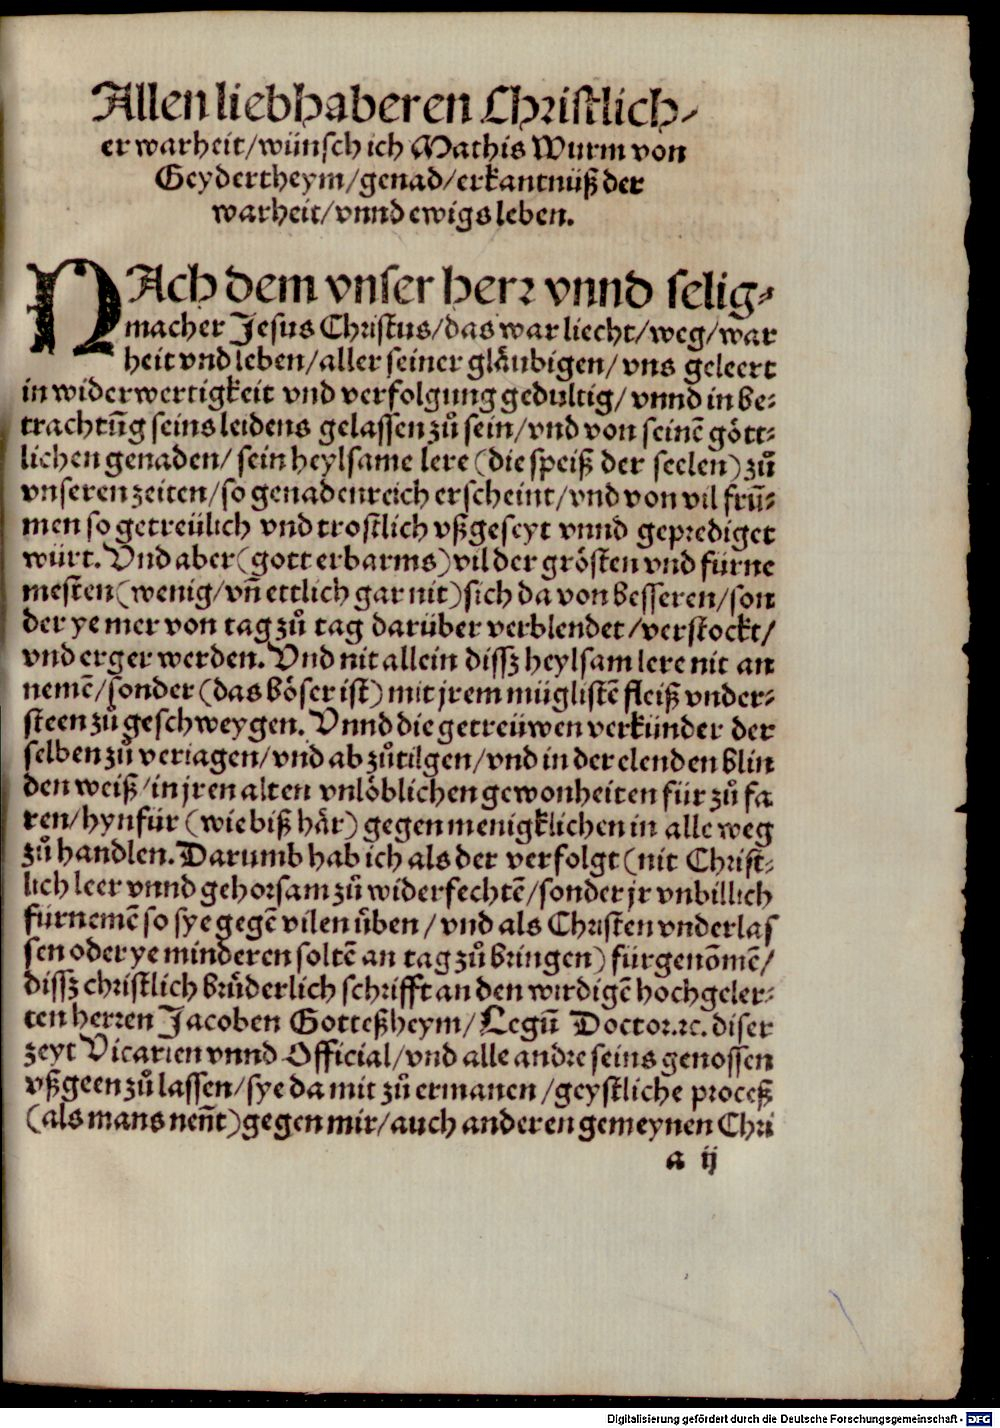 Allen liebhaberen Christlich⸗
er warheit/wünsch ich Mathis Wurm von
Geydertheym/genad/erkantnüß der
warheit/vnnd ewigs leben.
NAch dem vnser herr vnnd selig⸗
macher Jesus Christus/das war liecht/weg/war
heit vnd leben/aller seiner gläubigen/vns geleert
in widerwertigkeit vnd verfolgung gedultig/vnnd in be⸗
trachtūg seins leidens gelassen zů sein/vnd von seinē gött⸗
lichen genaden/sein heylsame lere (die speiß der seelen) zů
vnseren zeiten/so genadenreich erscheint/vnd von vil frū⸗
men so getreülich vnd trostlich vßgeseyt vnnd geprediget
würt. Vnd aber (gott erbarms) vil der grösten vnd fürne
mesten (wenig/vñ ettlich gar nit) sich da von besseren/son
der ye mer von tag zů tag darüber verblendet/verstockt/
vnd erger werden. Vnd nit allein dissz heylsam lere nit an
nemē/sonder (das böser ist) mit jrem müglistē fleiß vnder⸗
steen zů geschweygen. Vnnd die getreüwen verkünder der
selben zů veriagen/vnd ab zůtilgen/vnd in der elenden blin
den weiß/in jren alten vnlöblichen gewonheiten für zů fa
ren/hynfür (wie biß här) gegen menigklichen in alle weg
zů handlen. Darumb hab ich als der verfolgt (nit Christ⸗
lich leer vnnd gehorsam zů widerfechtē/sonder jr vnbillich
fürnemē so sye gegē vilen üben/vnd als Christen vnderlas
sen oder ye minderen soltē an tag zů bringen) fürgenōmē/
dissz christlich brüderlich schrifft an den wirdigē hochgeler⸗
ten herren Jacoben Gotteßheym/Legū Doctor.ꝛc. diser
zeyt Vicarien vnnd Official/vnd alle andre seins genossen
vßgeen zů lassen/sye da mit zů ermanen/geystliche proceß
(als mans neñt) gegen mir/auch anderen gemeynen Chri
a ij
Digitalisierung gefördert durch die Deutsche Forschungsgemeinschaft - DFG